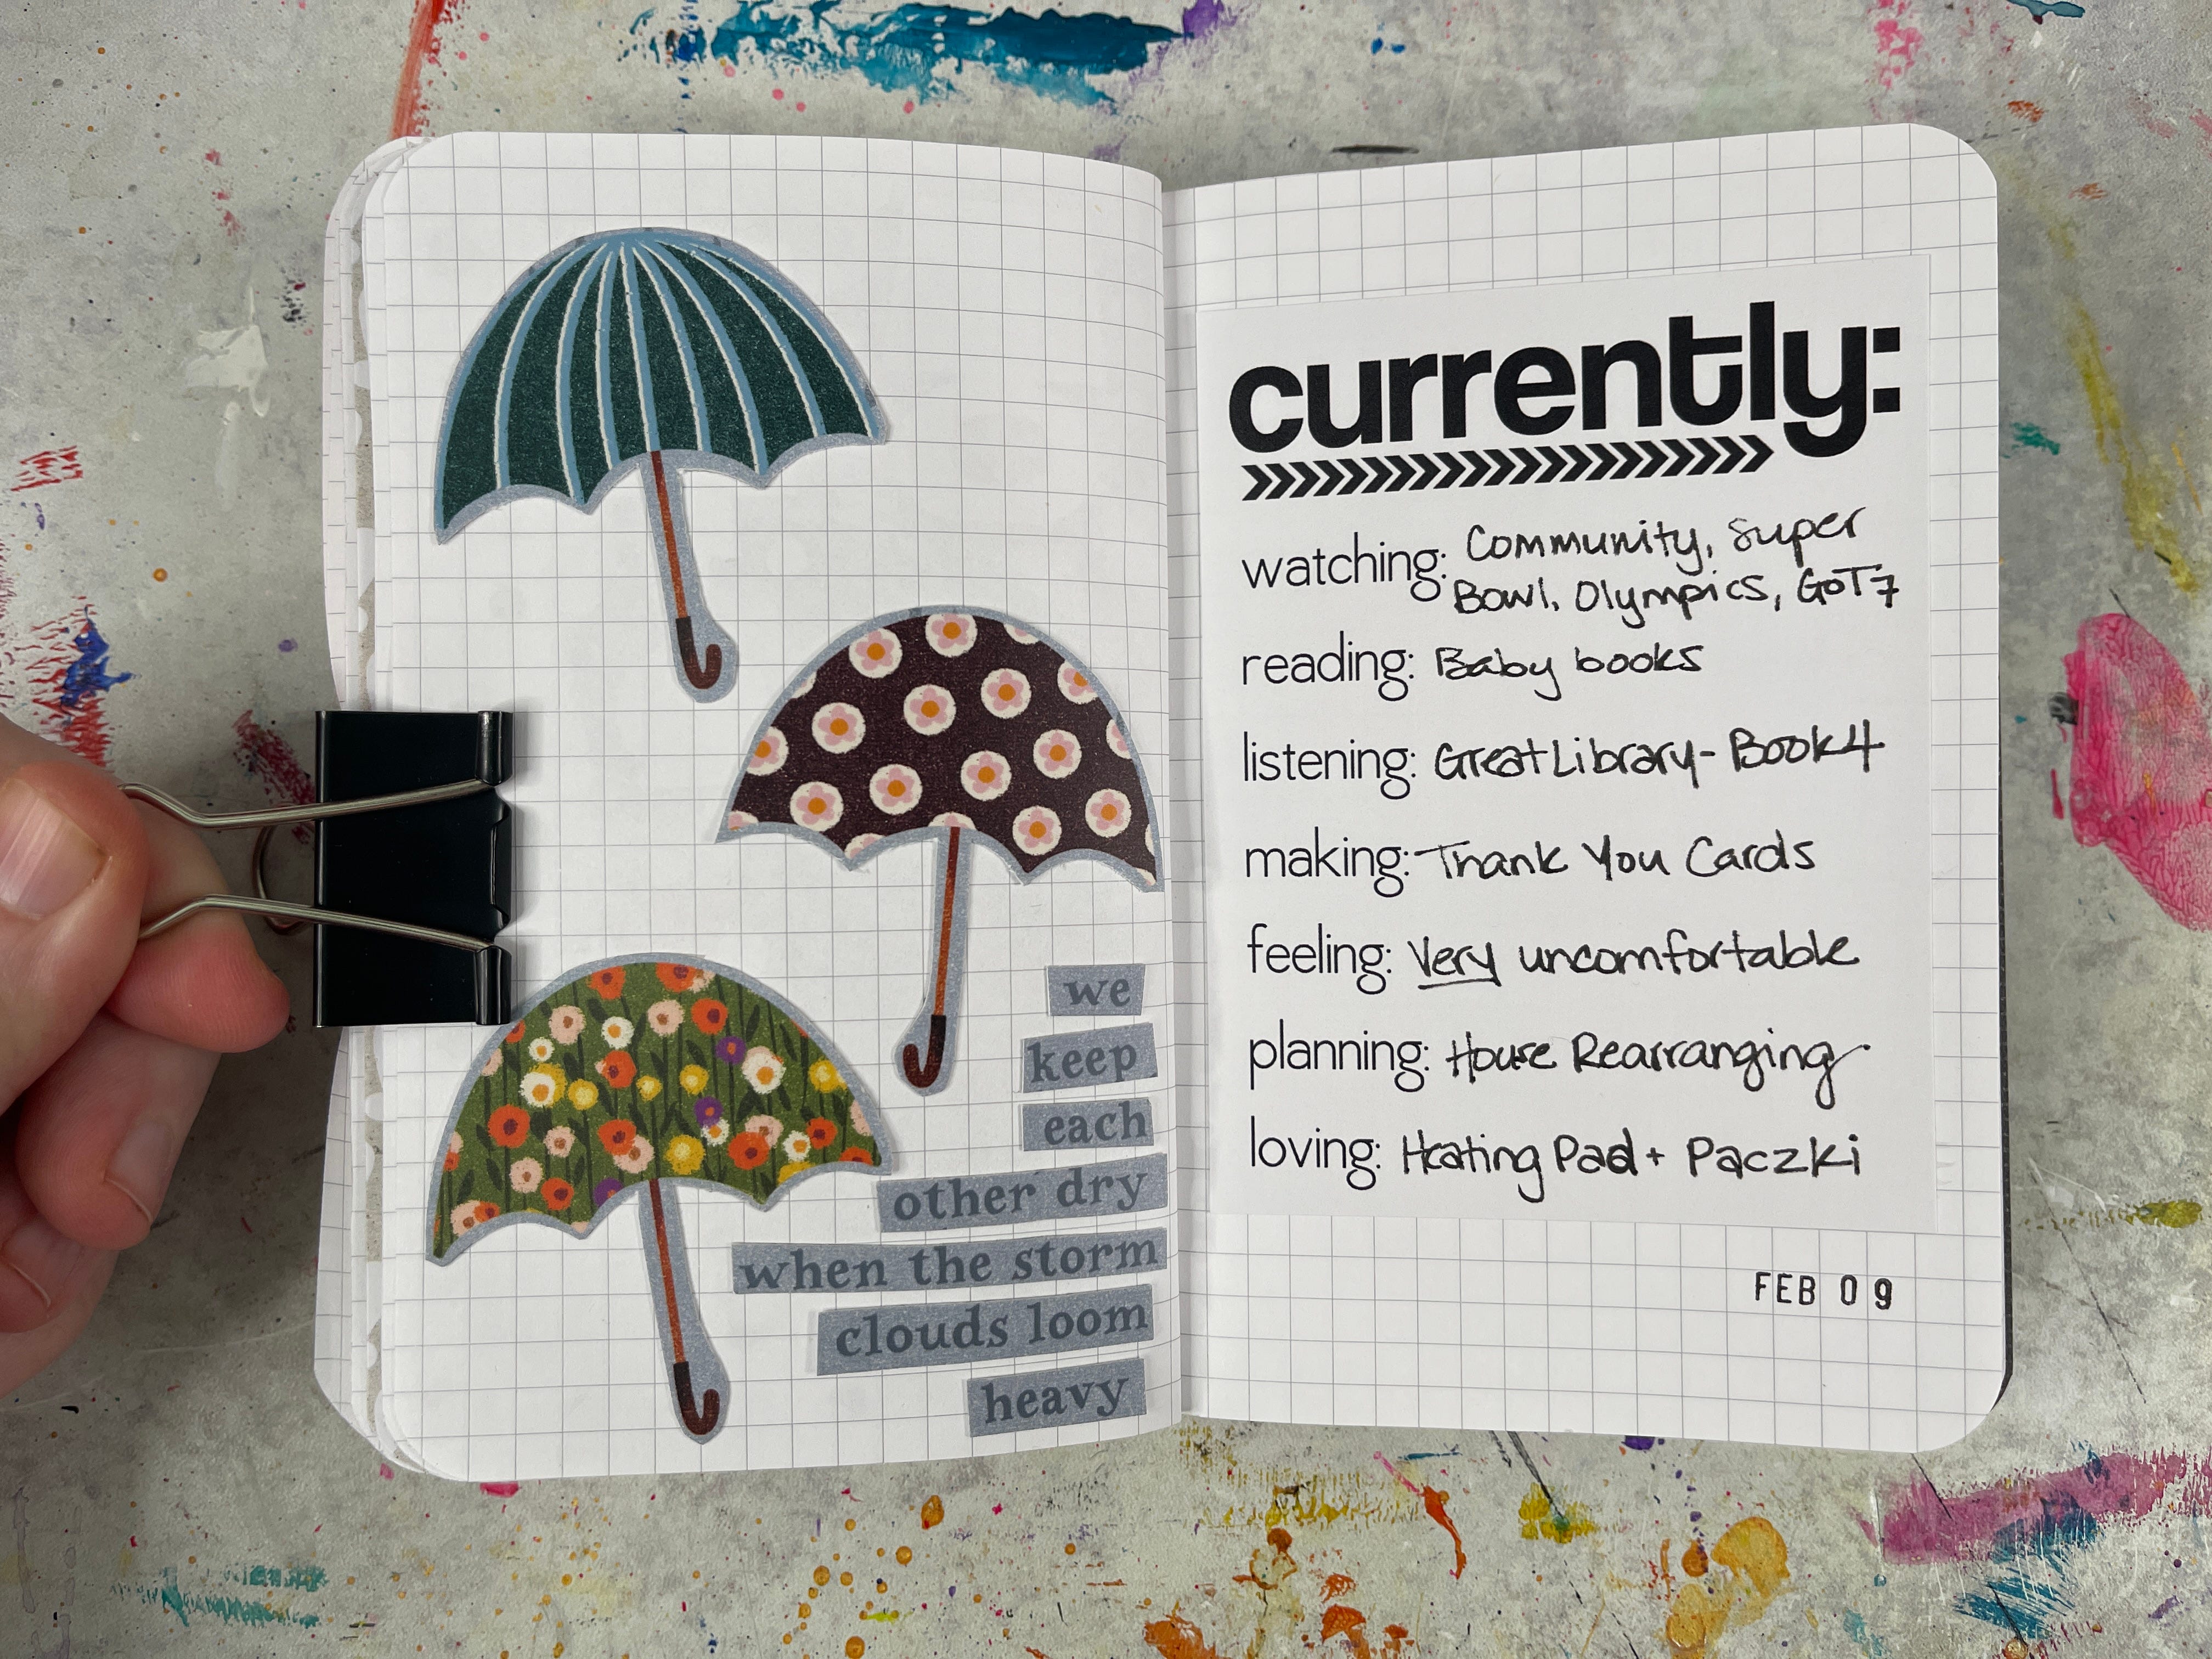 we
keep
each
other dry
when the storm
clouds loom
heavy
currently:
watching: Community, Super
Bowl, Olympics, GoT7
reading: Baby books
listening: Great Library - Book 4
making: Thank You Cards
feeling: Very uncomfortable
planning: House Rearranging
loving: Heating Pad + Paczki
FEB 09